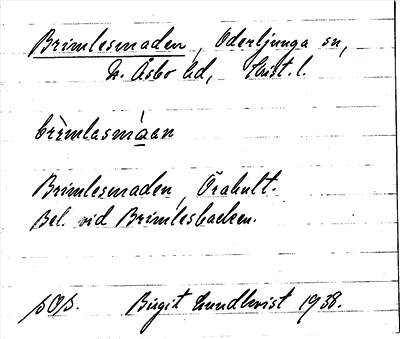 Brimlesmaden, Oderljunga sn,
N. Åsbo hd, Krist. l.
brìmlasmáan
Brimlesmaden, Örahult.
Bel. vid Brimlesbacken.
Birgit Lundkvist 1938.